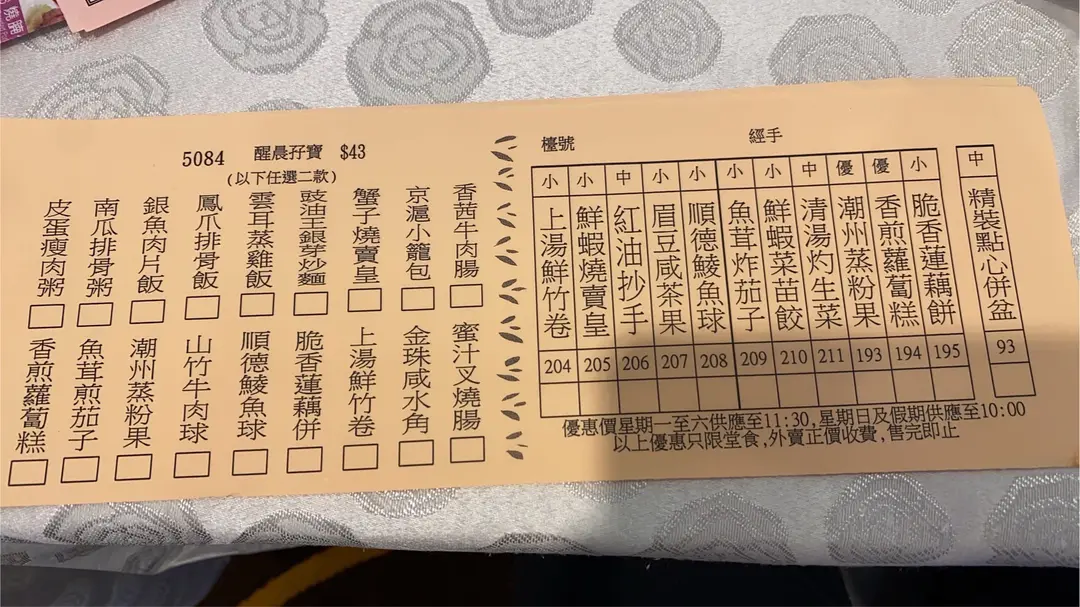 燒
5084 醒晨孖寶 $43
(以下任選二款)
香茜牛肉腸
京滬小籠包
蟹子燒賣皇
豉油王銀芽炒麵
雲耳蒸雞飯
鳳爪排骨飯
銀魚肉片飯
南瓜排骨粥
皮蛋瘦肉粥
蜜汁叉燒腸
金珠咸水角
上湯鮮竹卷
脆香蓮藕併
順德鯪魚球
山竹牛肉球
潮州蒸粉果
魚茸煎茄子
香煎蘿蔔糕
檯號 經手
中 精裝點心併盆 93
小 脆香蓮藕餅 195
優 香煎蘿蔔糕 194
優 潮州蒸粉果 193
中 清湯灼生菜 211
小 鮮蝦菜苗餃 210
小 魚茸炸茄子 209
小 順德鯪魚球 208
小 眉豆咸茶果 207
中 紅油抄手 206
小 鮮蝦燒賣皇 205
小 上湯鮮竹卷 204
優惠價星期一至六供應至11:30,星期日及假期供應至10:00
以上優惠只限堂食,外賣正價收費,售完即止